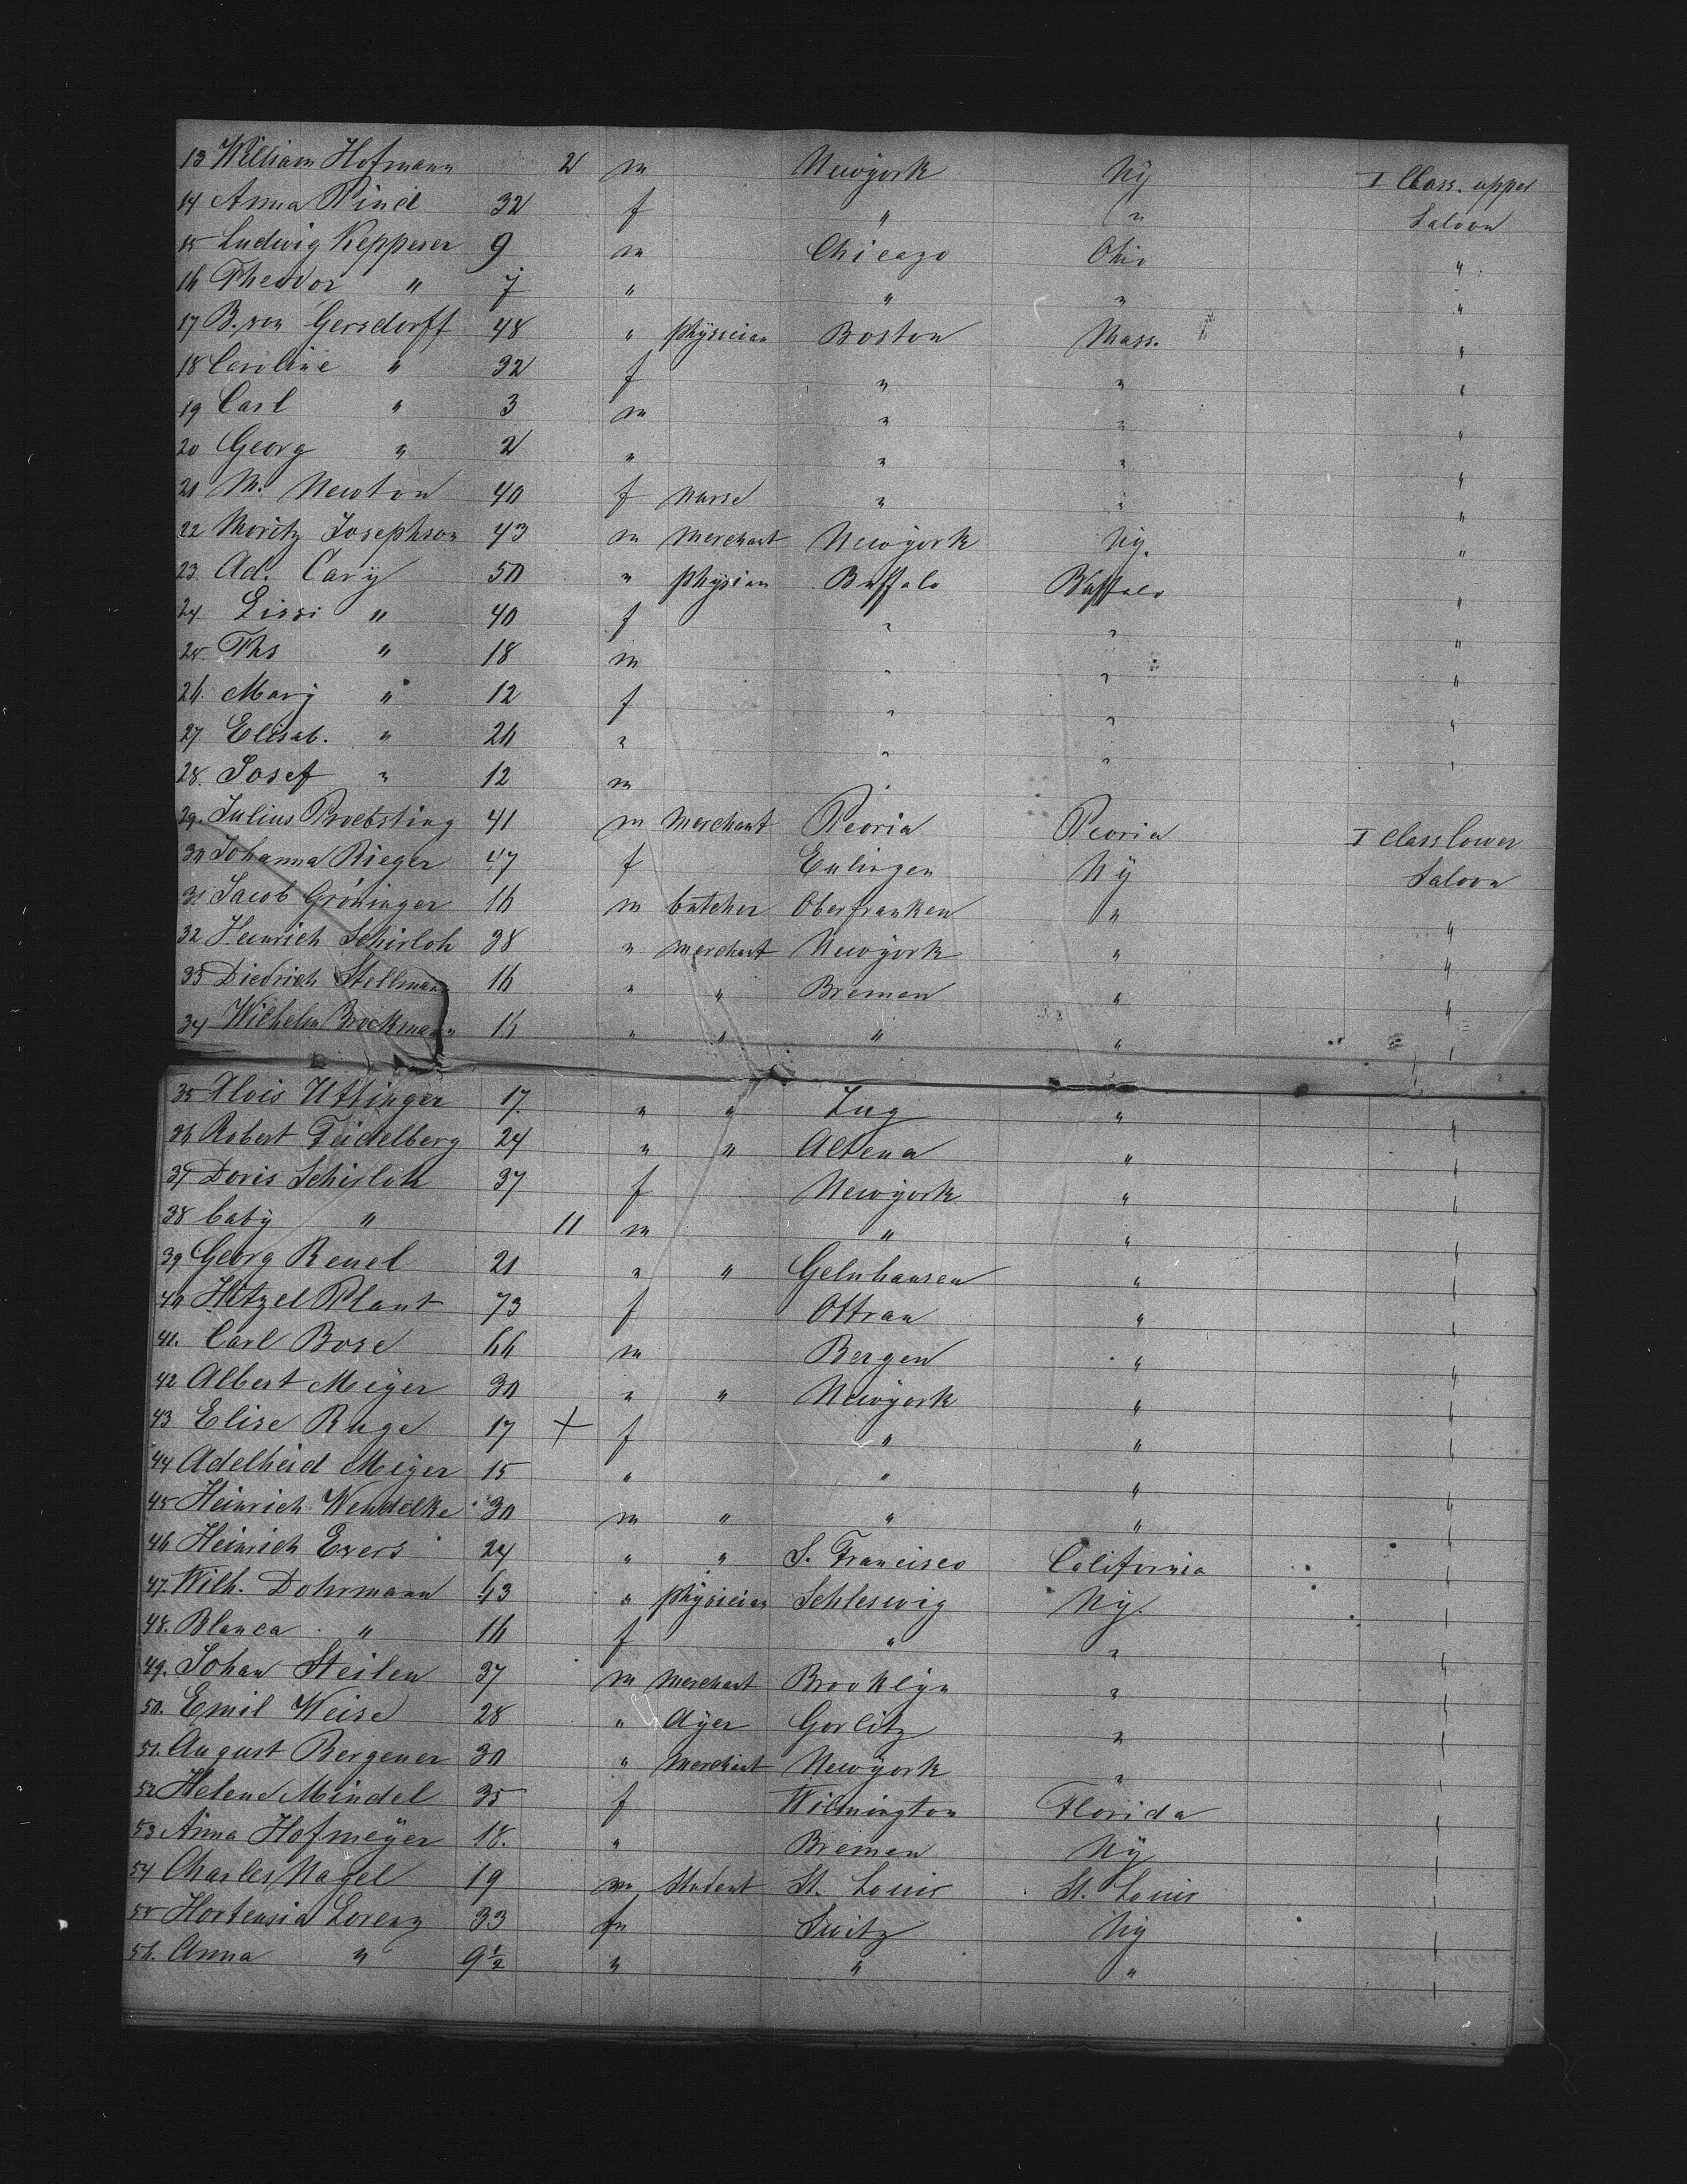 13 William Hofmann 2 m Newÿork Nÿ I Class. upper
14 Anna Rind 32 f " " Saloon
15 Ludwig Kepperer 9 m Chicago Ohio "
16 Theodor " 7 " " " "
17 B. von Gersdorff 48 " phÿsician Boston Mass. "
18 Caroline " 32 f " " "
19 Carl " 3 m " " "
20 Georg " 2 " " " "
21 M. Newton 40 f nurse " " "
22 Moritz Josephson 43 m merchant Newÿork Nÿ. "
23. Ad. Carÿ 50 " phÿsian Buffalo Buffalo "
24. Lissi " 40 f " " "
25. Ths " 18 m " " "
26. Marÿ " 12 f " " "
27. Elisab. " 26 " " " "
28. Josef " 12 m "
29. Julius Proebsting 41 m merchant Peoria Peoria I Class lower
30 Johanna Rieger 47 f Enlingen Nÿ Saloon
31 Jacob Gröninger 16 m butcher Oberfranken " "
32 Heinrich Schirloh 38 " merchant Newÿork " "
33 Diedrich Stellmann 16 " " Bremen " "
34 Wilhelm Brockmann 16 " " " " "
35 Alois Uttinger 17. " " Zug " "
36 Robert Feidelberg 24 " " Altena " "
37 Doris Schirloh 37 f Newÿork " "
38 babÿ " 11 m " " "
39 Georg Reuel 21 " " Gelnhausen " "
40 Hetzel Plaut 73 f Ottrau " "
41. Carl Bose 66 m Bergen " "
42 Albert Meÿer 30 " " Newÿork " "
43 Elise Ruge 17 + f " " "
44 Adelheid Meÿer 15 " " " "
45 Heinrich Wendelke 30 m " " " "
46 Heinrich Evers 24 " " S. Francisco California "
47. Wilh. Dohrmann 43 " phÿsician Schleswig Nÿ. "
48. Blanca " 16 f " " "
49. Johan Steilen 37 m merchant Brooklÿn " "
50. Emil Weise 28 " dÿer Gorlitz " "
51. August Bergener 30 " merchant Newÿork " "
52 Helene Mindel 35 f Wilmington Florida "
53 Anna Hofmeÿer 18. " Bremen Nÿ "
54 Charles Nagel 19 m Student St. Louis St. Louis "
55 Hortensia Lorenz 33 f Switz Nÿ "
56. Anna " 9½ " " " "